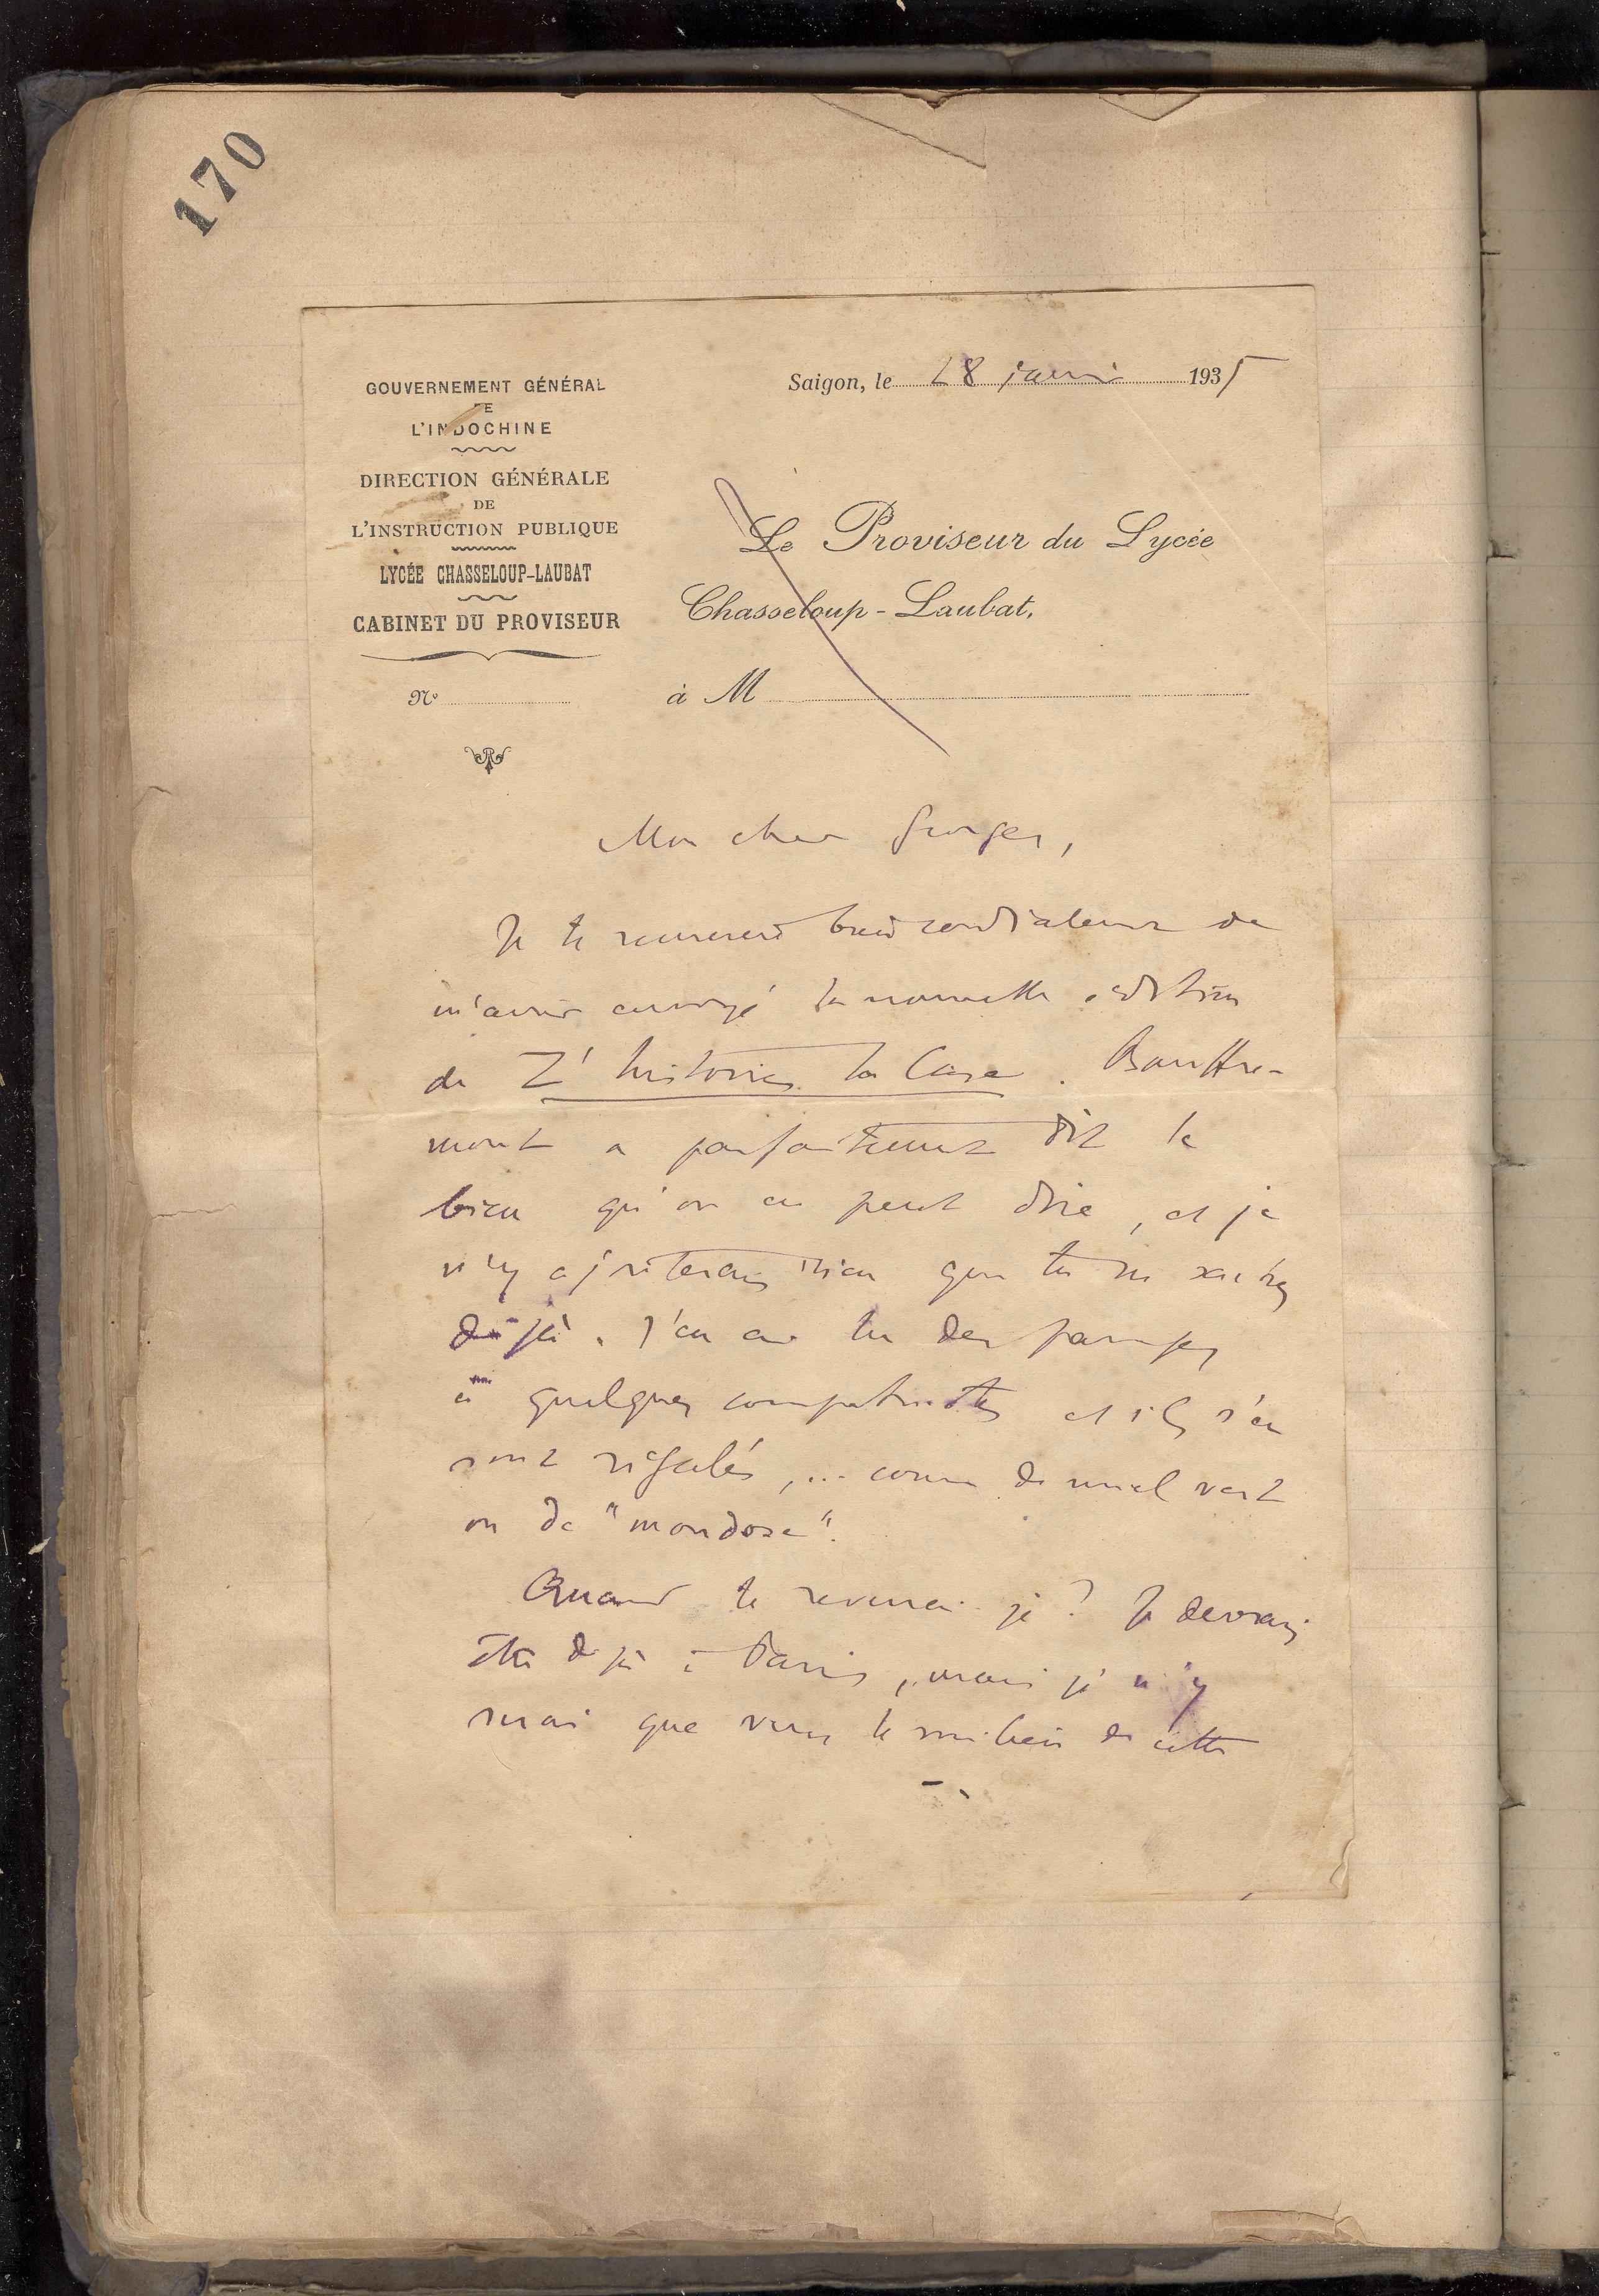 170
GOUVERNEMENT GÉNÉRAL
DE
L'INDOCHINE
DIRECTION GÉNÉRALE
DE
L'INSTRUCTION PUBLIQUE
LYCÉE CHASSELOUP-LAUBAT
CABINET DU PROVISEUR
No
Saigon, le 28 janvier 1935
Le Proviseur du Lycée
Chasseloup-Laubat,
à M
Mon cher Georges,
Je te remercie bien cordialement de
m'avoir envoyé la nouvelle édition
de L'histoire la Case. Bauffre-
mont a parfaitement dit le
bien qu'on en peut dire, et je
n'y ajouterais rien que tu ne saches
déjà. J'en ai lu des passages
à quelques compatriotes et ils s'en
sont régalés, ... comme de miel vert
ou de "mondose".
Quand te reverrai-je ? Je devrais
être déjà à Paris, mais je n'y
serai que vers le milieu de cette